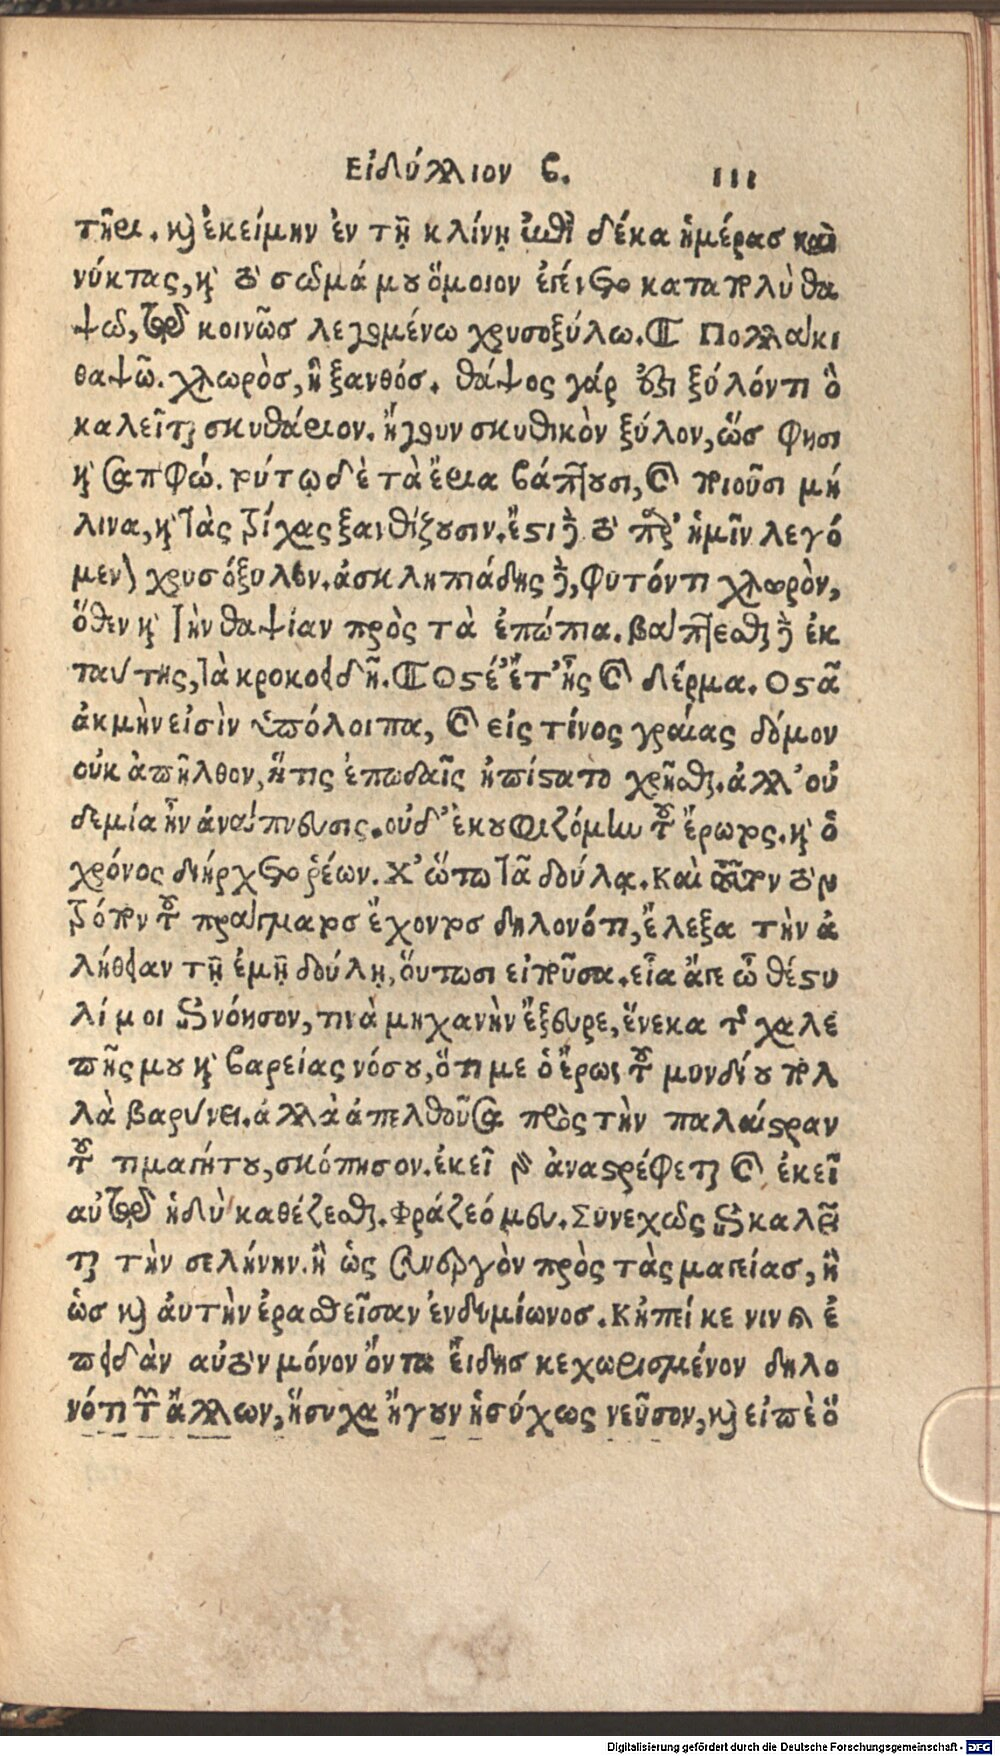 Εἰδύλλιον β. 111
τῆρι. καὶ ἐκείμην ἐν τῇ κλίνῃ ἐπὶ δέκα ἡμέρας καὶ
νύκτας, καὶ τὸ σῶμά μου ὅμοιον ἐγένετο καταπολὺ θα
ψῷ, τῷ κοινῶς λεγομένῳ χρυσοξύλῳ. Πολλάκι
θαψῶ. χλωρὸς, ἢ ξανθός. θάψος γάρ ἐστι ξύλόν τι ὃ
καλεῖται σκυθάριον. ἤγουν σκυθικὸν ξύλον, ὥς φησι
καὶ Σαπφώ. τούτῳ δὲ τὰ ἔρια βάπτουσι, καὶ ποιοῦσι μή
λινα, καὶ τὰς τρίχας ξανθίζουσιν. ἔστι δὲ τὸ παρ’ ἡμῖν λεγό
μενον χρυσόξυλον. ἀσκληπιάδης δὲ, φυτόν τι χλωρὸν,
ὅθεν καὶ τὴν θαψίαν πρὸς τὰ ἐπώπια. βάπτεσθαι δὲ ἐκ
ταύτης, τὰ κροκοειδῆ. Ὀστέ’ ἔτ’ ἦς καὶ δέρμα. Ὀστᾶ
ἀκμὴν εἰσὶν ὑπόλοιπα, καὶ εἰς τίνος γραίας δόμον
οὐκ ἀπῆλθον, ἥτις ἐπωδαῖς ἠπίστατο χρῆσθαι. ἀλλ’ οὐ
δεμία ἦν ἀνάπνευσις. οὐδ’ ἐκουφιζόμην τοῦ ἔρωτος. καὶ ὁ
χρόνος διήρχετο ῥέων. Χ’ ὥτω τᾶ δούλᾳ. Καὶ οὕτων τὸν
τρόπον τοῦ πράγματος ἔχοντος δηλονότι, ἔλεξα τὴν ἀ
λήθειαν τῇ ἐμῇ δούλῃ, οὕτωσι εἰποῦσα. εἶα ἄγε ὦ θέστυ
λί μοι νόησον, τινὰ μηχανὴν ἔξευρε, ἕνεκα τῆς χαλε
πῆς μου καὶ βαρείας νόσου, ὅτι με ὁ ἔρως τοῦ μυνδίου πολ
λὰ βαρύνει. ἀλλὰ ἀπελθοῦσα πρὸς τὴν παλαίστραν
τοῦ τιμαγήτου, σκόπησον. ἐκεῖ γὰρ ἀναστρέφεται καὶ ἐκεῖ
αὐτῷ ἡδὺ καθέζεσθαι. Φράζεό μευ. Συνεχῶς καλεῖ
ται τὴν σελήνην. ἢ ὡς συνεργὸν πρὸς τὰς μαγείας, ἢ
ὡς καὶ ἀυτὴν ἐρασθεῖσαν ἐνδυμίωνος. Κἠπεί κέ νιν ἐ
πειδὰν αὐτὸν μόνον ὄντα εἴδης κεχωρισμένον δηλο
νότι τῶν ἄλλων, ἥσυχα ἤγουν ἡσύχως νεῦσον, καὶ εἰπὲ ὅ
Digitalisierung gefördert durch die Deutsche Forschungsgemeinschaft - DFG